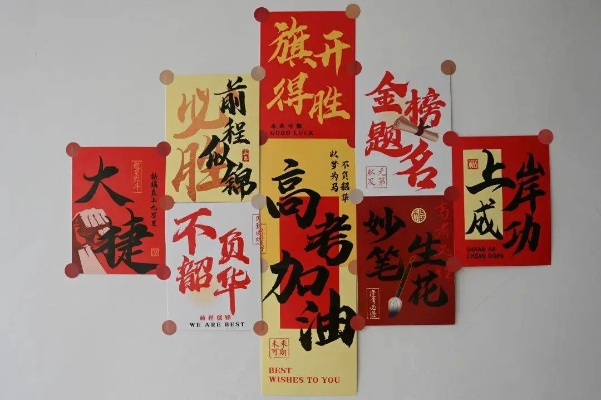 旗开
得胜
GOOD LUCK
必胜
前程似锦
金榜
题名
大捷
不负
韶华
前程似锦
WE ARE BEST
不负韶华
以梦为马
高考
加油
未来
可期
BEST
WISHES TO YOU
妙笔
生花
上岸
成功
CHENG GONG